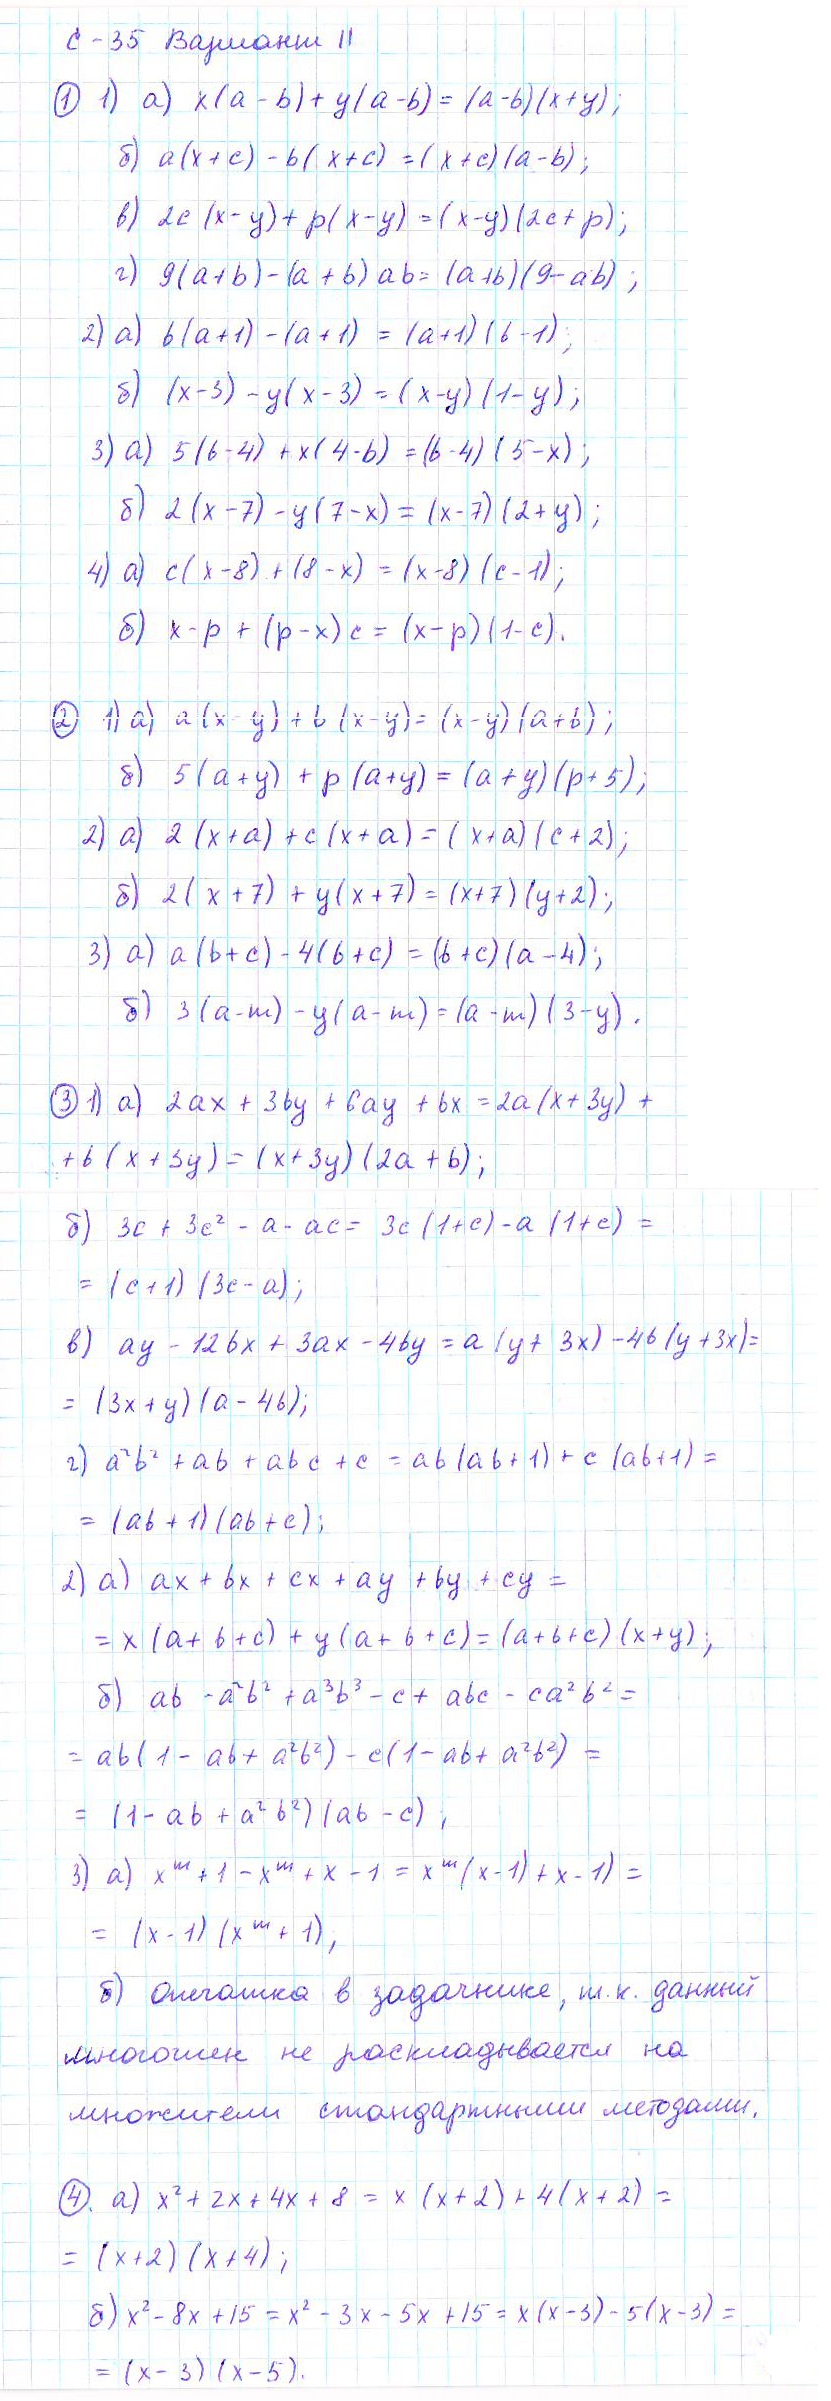 С-35 Вариант II
① 1) а) x(a-b)+y(a-b)=(a-b)(x+y);
б) a(x+c)-b(x+c)=(x+c)(a-b);
в) 2c(x-y)+p(x-y)=(x-y)(2c+p);
г) 9(a+b)-(a+b)ab=(a+b)(9-ab);
2) а) b(a+1)-(a+1)=(a+1)(b-1);
б) (x-3)-y(x-3)=(x-y)(1-y);
3) а) 5(b-4)+x(4-b)=(b-4)(5-x);
б) 2(x-7)-y(7-x)=(x-7)(2+y);
4) а) c(x-8)+(8-x)=(x-8)(c-1);
б) x-p+(p-x)c=(x-p)(1-c).
② 1) а) a(x-y)+b(x-y)=(x-y)(a+b);
б) 5(a+y)+p(a+y)=(a+y)(p+5);
2) а) 2(x+a)+c(x+a)=(x+a)(c+2);
б) 2(x+7)+y(x+7)=(x+7)(y+2);
3) а) a(b+c)-4(b+c)=(b+c)(a-4);
б) 3(a-m)-y(a-m)=(a-m)(3-y).
③ 1) а) 2ax+3by+6ay+bx=2a(x+3y)+
+b(x+3y)=(x+3y)(2a+b);
б) 3c+3c²-a-ac=3c(1+c)-a(1+c)=
=(c+1)(3c-a);
в) ay-12bx+3ax-4by=a(y+3x)-4b(y+3x)=
=(3x+y)(a-4b);
г) a²b²+ab+abc+c=ab(ab+1)+c(ab+1)=
=(ab+1)(ab+c);
2) а) ax+bx+cx+ay+by+cy=
=x(a+b+c)+y(a+b+c)=(a+b+c)(x+y);
б) ab-a²b²+a³b³-c+abc-ca²b²=
=ab(1-ab+a²b²)-c(1-ab+a²b²)=
=(1-ab+a²b²)(ab-c);
3) а) xᵐ+1-xᵐ+x-1=xᵐ(x-1)+x-1)=
=(x-1)(xᵐ+1);
б) Опечатка в задачнике, т.к. данный
многочлен не раскладывается на
множители стандартными методами.
④. а) x²+2x+4x+8=x(x+2)+4(x+2)=
=(x+2)(x+4);
б) x²-8x+15=x²-3x-5x+15=x(x-3)-5(x-3)=
=(x-3)(x-5).